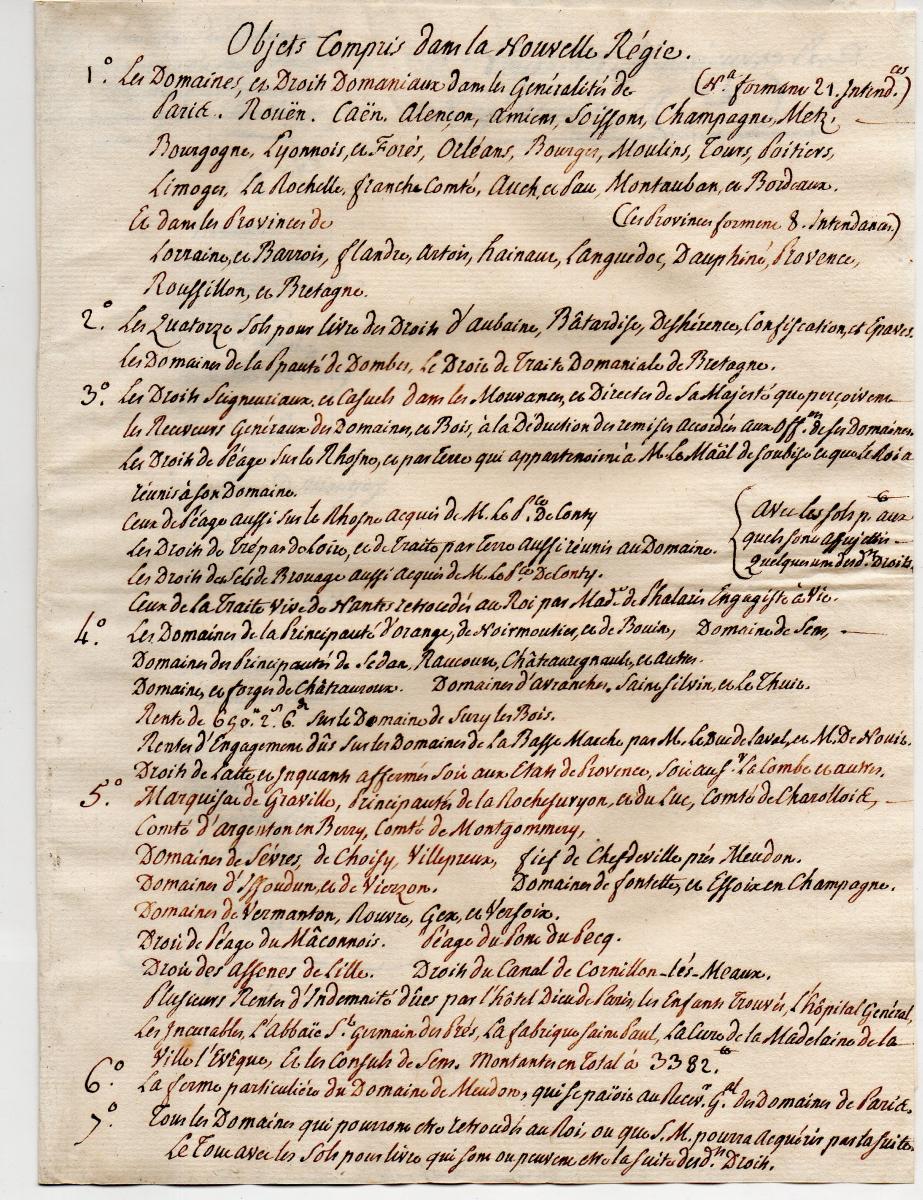 Objets Compris dans la Nouvelle Régie.
1.° Les Domaines, et Droits Domaniaux dans les Généralités de (N.a forment 21. Intend.ces)
Paris. Roüen. Caën. Alençon, Amiens, Soissons, Champagne, Metz,
Bourgogne, Lyonnois, et Forés, Orléans, Bourges, Moulins, Tours, Poitiers,
Limoges, La Rochelle, franche Comté, Auch, et Pau, Montauban, et Bordeaux.
Et dans les Provinces de (Ces Provinces forment 8. Intendances)
Lorraine, et Barrois, flandre, Artois, hainaut, Languedoc, Dauphiné, Provence,
Roussillon, et Bretagne.
2.° Les Quatorze Sols pour livre des Droits d'aubaine, Bâtardise, Deshérence, Confiscation, et Epaves.
Les Domaines de la Ppauté de Dombes, Le Droit de Traite Domaniale de Bretagne.
3.° Les Droits Seigneuriaux, et Casuels dans les Mouvances, et Directes de Sa Majesté que perçoivent
les Receveurs Généraux des Domaines, et Bois, à la Déduction des remises accordées aux Off.ers de ses Domaines.
Les Droits de Péage sur le Rhosne, et par Terre qui appartenoient à M. le Maäl de Soubise et que le Roi a
réunis à son Domaine.
Ceux de Péage aussi sur le Rhosne acquis de M. Le P.ce De Conty
Les Droits de Trépas de Loire, et de Traite par Terre aussi réunis au Domaine.
Les Droits des Sels de Brouage aussi acquis de M. Le P.ce De Conty.
{ avec les sols p. aux
quels sont assujettis
quelques uns desd. Droits.
Ceux de la Traite Vive de Nantes retrocedés au Roi par Mad.e de Phalaris Engagiste à Vie.
4.° Les Domaines de la Principauté d'orange, de Noirmoutier, et de Bouin, Domaine de Sens,
Domaines des Principautés de Sedan, Raucourt, Châteauregnault, et autres.
Domaines, et forges de Châteauroux. Domaines d'avranches, Saint Silvin, et Le Thuit.
Rente de 690.tt 2.s 6.d sur le Domaine de Sury les Bois.
Rentes d'Engagement dûs sur les Domaines de La Basse Marche par M. Le Duc de Laval, et M. De
Droits de Latte, et Inquants affermés soit aux Etats de Provence, soit au S.r La Combe et autres.
5.° Marquisat de Graville, Principautés de la Rochesuryon, et du Luc, Comté de Charollois,
Comté d'argenton en Berry, Comté de Montgommery,
Domaines de Sévres, de Choisy, Villepreux, fief de Chefdeville prés Meudon.
Domaines d'Issoudun, et de Vierzon. Domaines de fontette, et Essoix en Champagne.
Domaines de Vermanton, Rouvre, Gex, et Versoix.
Droit de Péage du Mâconnois. Péage du Pont du Pecq.
Droit des assenes de Lille. Droits du Canal de Cornillon-lés-Meaux.
Plusieurs Rentes d'Indemnité dûes par l'hôtel Dieu de Paris, les Enfants Trouvés, L'hôpital Général,
Les Incurables, L'Abbaïe S.t Germain des Prés, La fabrique Saint Paul, La Cure de la Madelaine de la
Ville l'Evêque, Et les Consuls de Sens. Montantes en Total à 3382.tt
6.° La ferme particuliére du Domaine de Meudon, qui se païoit au Recev.r G.al des Domaines de Paris.
7.° Tous les Domaines qui pourront etre retrocédés au Roi, ou que S. M. pourra Acquérir par la suite
Le Tout avec les Sols pour livre qui sont ou peuvent etre la suite desd. Droits.